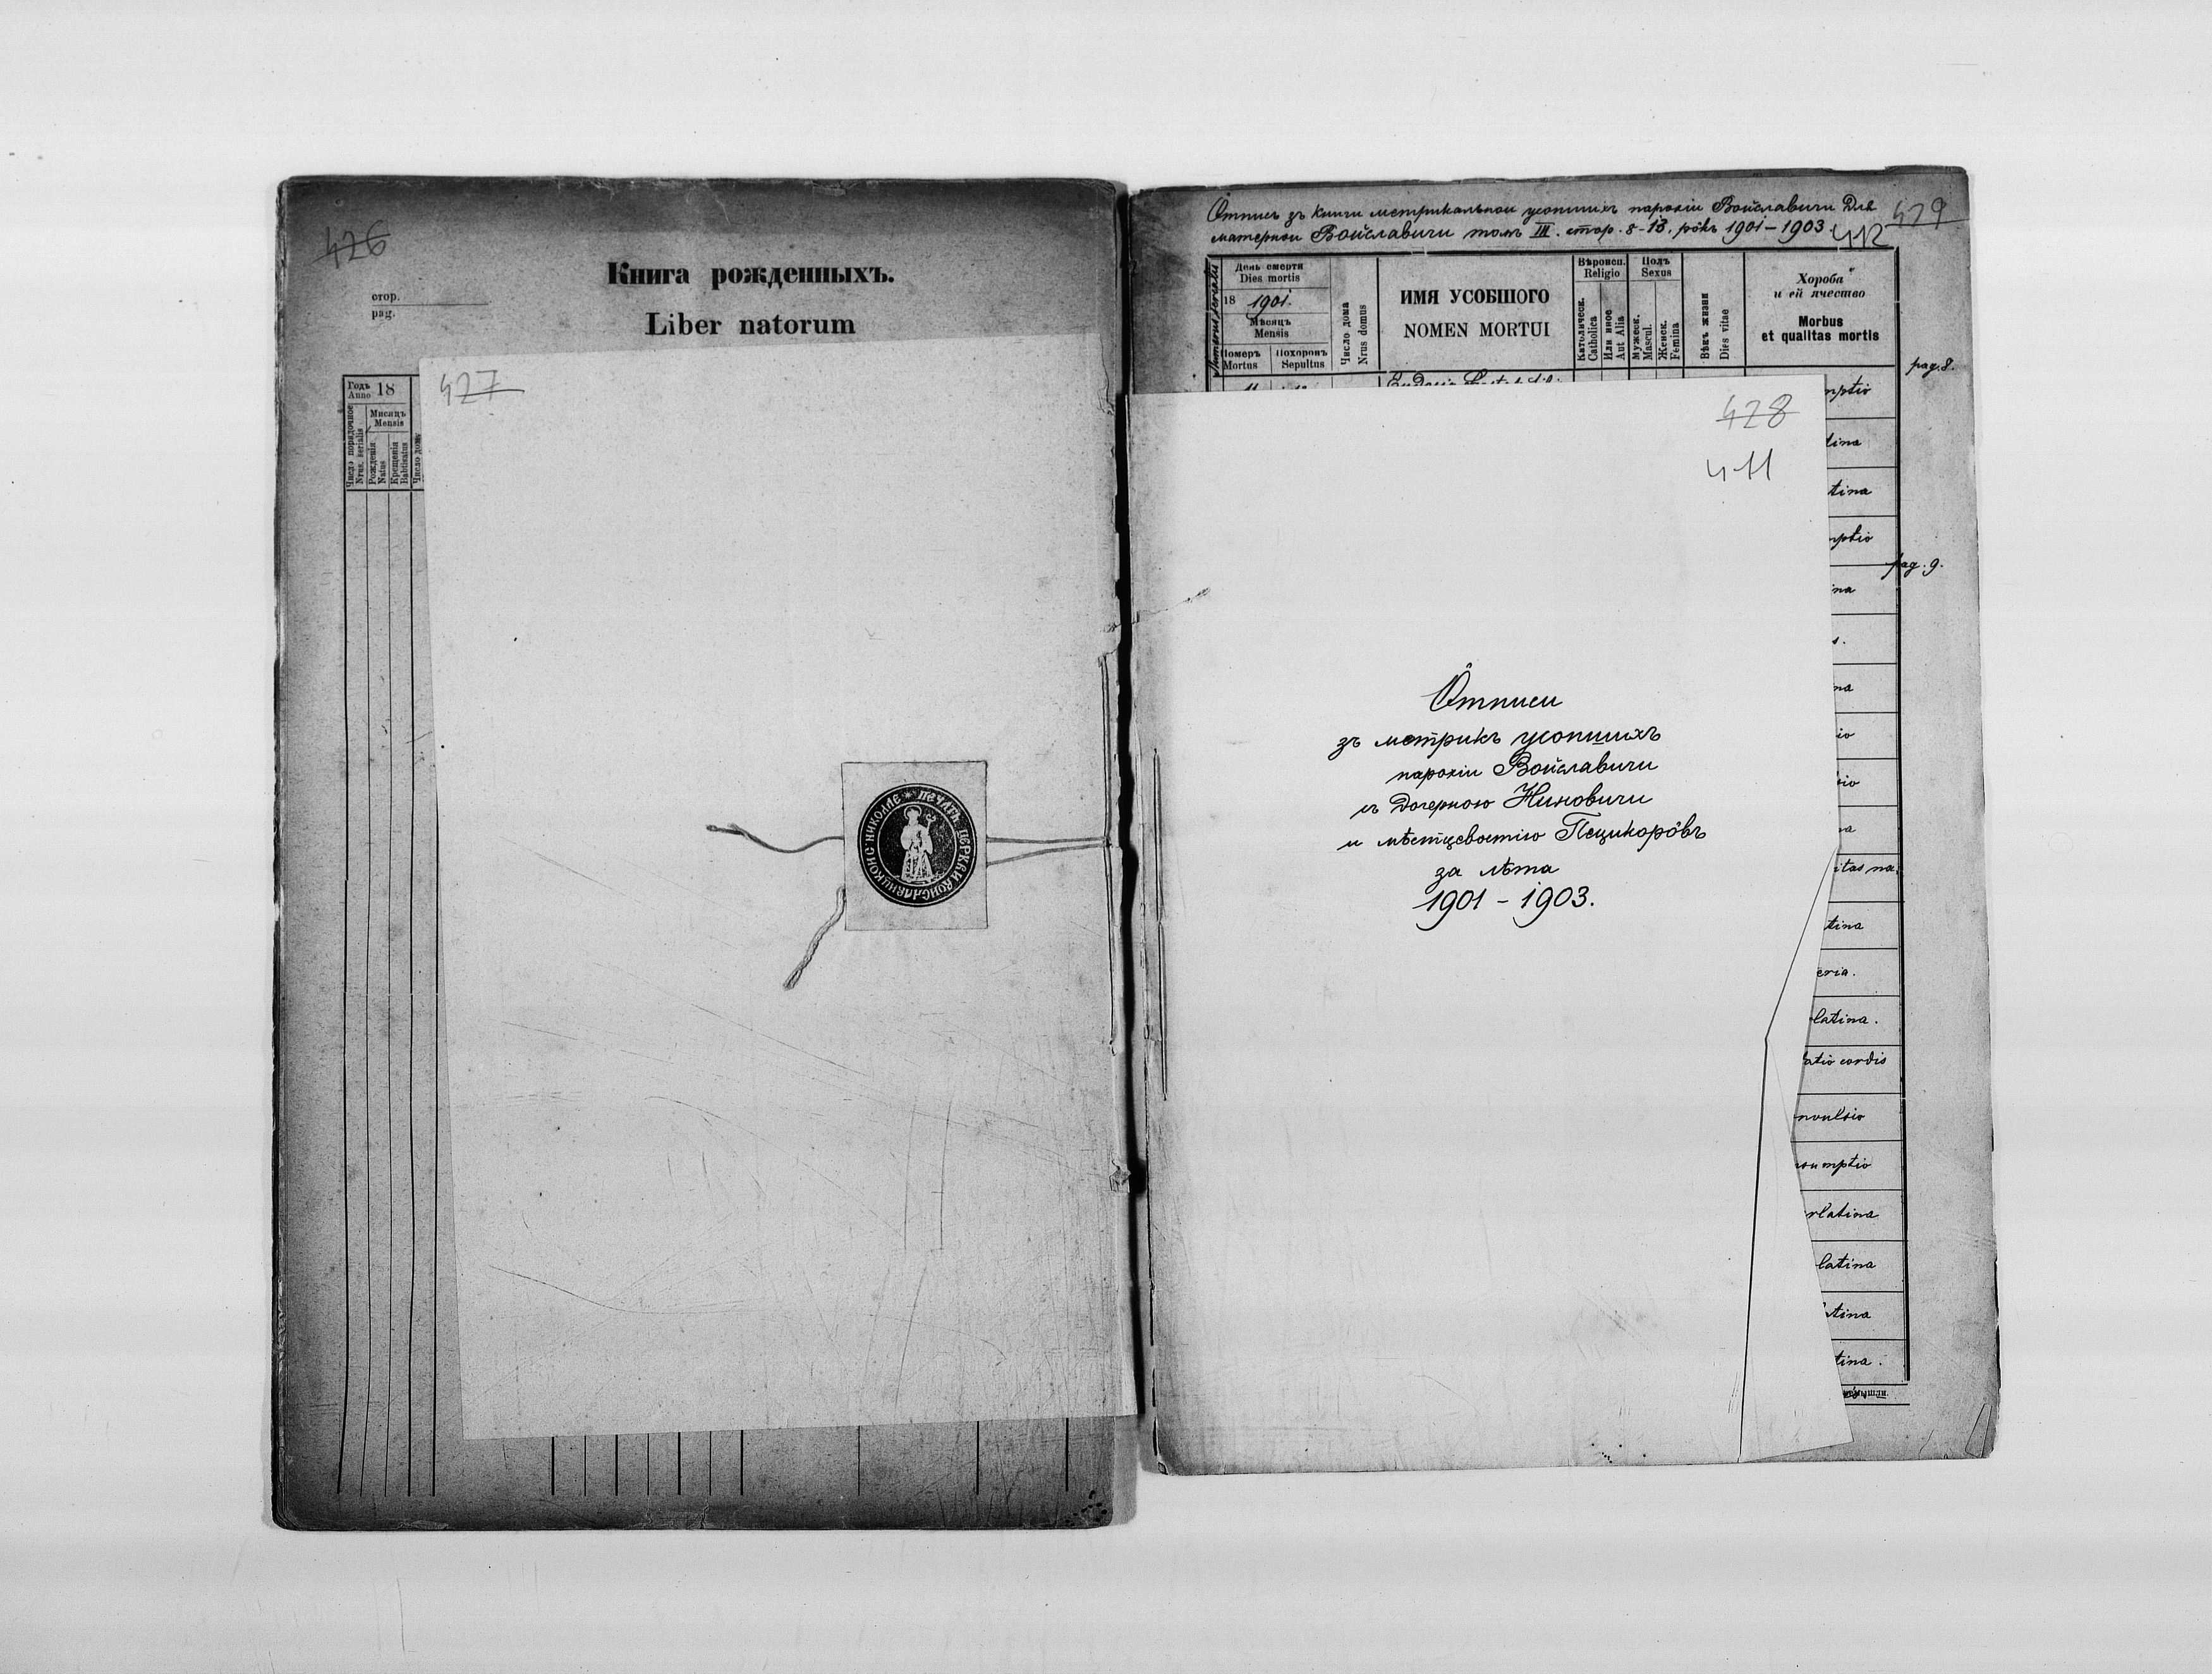 426
Книга рожденныхъ.
стор.
pag.
Liber natorum
Годъ
Anno 18
Мисяцъ
Mensis
Число порядочное
Nrus. serialis
Рожденія
Natus
Крещенія
Babtisatus
Число дому
427
ПЕЧАТЬ ЦЕРКВИ ВОИСЛАВИЦКОИ С НИКОЛАЕ
Ôтписъ зъ книги метрикальнои усопшихъ парохіи Войславичи Для 429
матернои Войславичи томъ III. стор. 8-13. рôкъ 1901-1903. 412
Numerus serialis
День смерти
Dies mortis
18 1901.
Мѣсяцъ
Mensis
Померъ
Mortus
Похоронъ
Sepultus
Число дома
Nrus domus
ИМЯ УСОБШОГО
NOMEN MORTUI
Вѣроисп.
Religio
Католическ.
Catholica
Или иное
Aut Alia
Полъ
Sexus
Мужеск.
Mascul.
Женск.
Femina
Вѣкъ жизни
Dies vitae
Хороба
и ей ячество
Morbus
et qualitas mortis
pag. 8.
mptio
428
411
lina
tina
mptio
pag. 9.
ina
s.
na
io
sio
na
itas na
tina
eria.
latina.
latio cordis
nvulsio
sumptio
rlatina
latina
atina
tina.
Ôтписи
зъ метрикъ усопшихъ
парохіи Войславичи
съ Дочерною Ниновичи
и мѣстцевостію Пецихорôвъ
за лѣта
1901-1903.